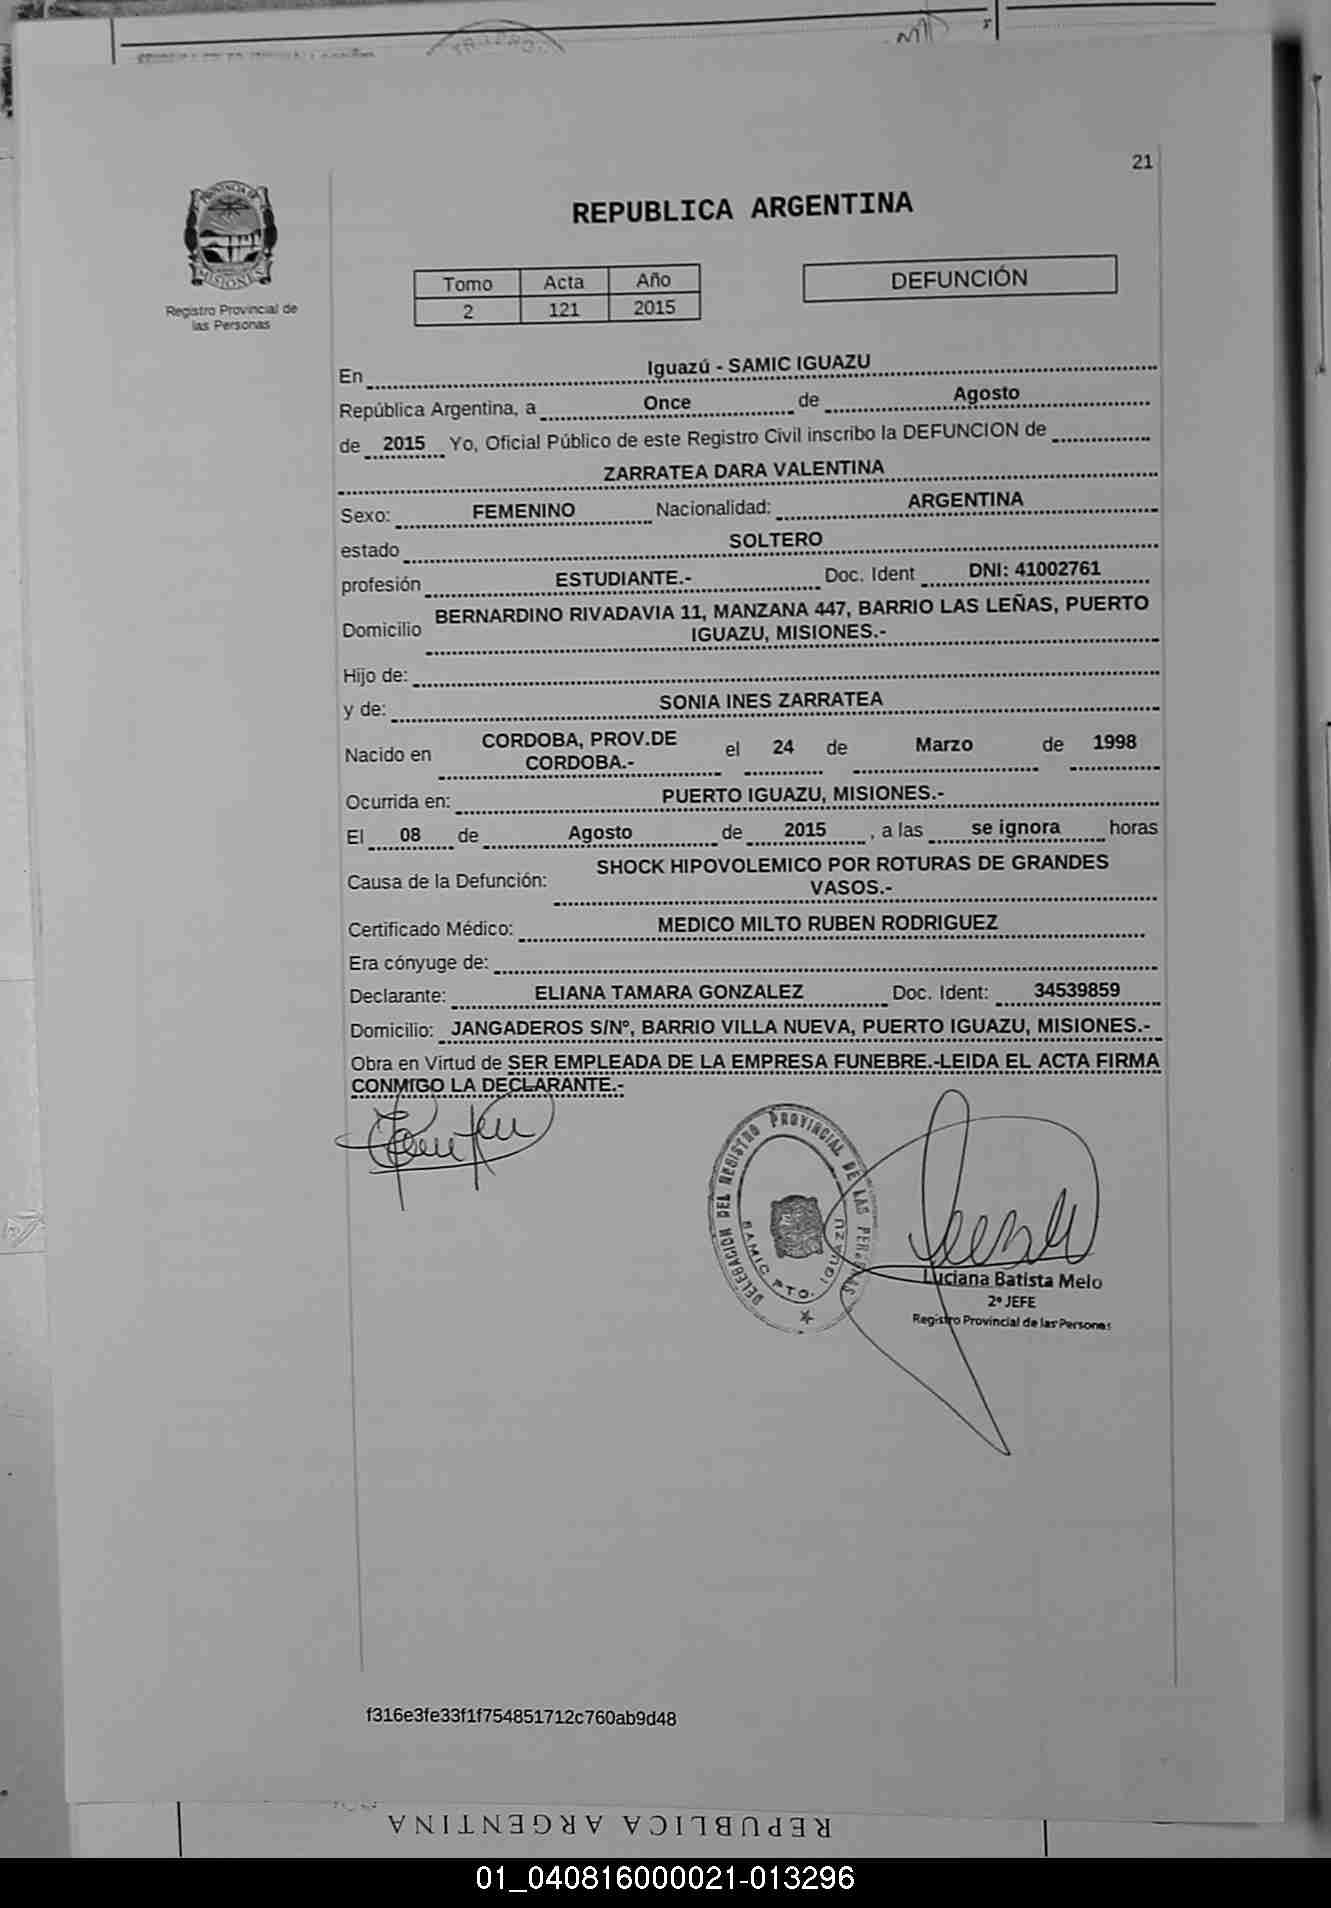 21
REPUBLICA ARGENTINA
PROVINCIA DE
MISIONES
Registro Provincial de
las Personas
Tomo Acta Año
2 121 2015
DEFUNCIÓN
En Iguazú - SAMIC IGUAZU
República Argentina, a Once de Agosto
de 2015 Yo, Oficial Público de este Registro Civil inscribo la DEFUNCION de
ZARRATEA DARA VALENTINA
Sexo: FEMENINO Nacionalidad: ARGENTINA
estado SOLTERO
profesión ESTUDIANTE.- Doc. Ident DNI: 41002761
Domicilio BERNARDINO RIVADAVIA 11, MANZANA 447, BARRIO LAS LEÑAS, PUERTO
IGUAZU, MISIONES.-
Hijo de:
y de: SONIA INES ZARRATEA
Nacido en CORDOBA, PROV.DE
CORDOBA.- el 24 de Marzo de 1998
Ocurrida en: PUERTO IGUAZU, MISIONES.-
El 08 de Agosto de 2015 , a las se ignora horas
Causa de la Defunción: SHOCK HIPOVOLEMICO POR ROTURAS DE GRANDES
VASOS.-
Certificado Médico: MEDICO MILTO RUBEN RODRIGUEZ
Era cónyuge de:
Declarante: ELIANA TAMARA GONZALEZ Doc. Ident: 34539859
Domicilio: JANGADEROS S/Nº, BARRIO VILLA NUEVA, PUERTO IGUAZU, MISIONES.-
Obra en Virtud de SER EMPLEADA DE LA EMPRESA FUNEBRE.-LEIDA EL ACTA FIRMA
CONMIGO LA DECLARANTE.-
DELEGACION DEL REGISTRO PROVINCIAL DE LAS PERSONAS
SAMIC PTO. IGUAZU
Luciana Batista Melo
2º JEFE
Registro Provincial de las Personas
f316e3fe33f1f754851712c760ab9d48
REPUBLICA ARGENTINA
01_040816000021-013296